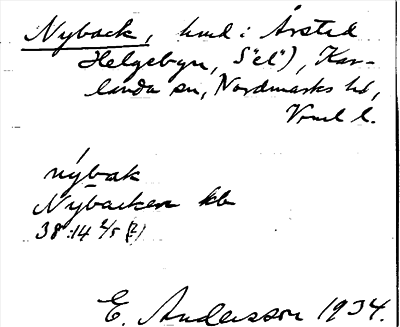 Nyback, hmd i Årsted
Helgebyn, S"el"), Kar-
landa sn, Nordmarks hd,
Vrml l.
nybak
Nybacken kb
38:14 2/5 (2)
E. Andersson 1934.